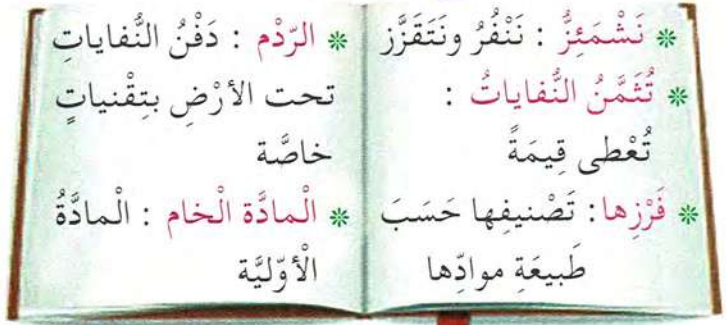 * نَشْمَئِزُّ : نَنْفُرُ ونَتَقَزَّز
* تُثَمَّنُ النُّفاياتُ :
تُعْطى قِيمَةً
* فَرْزِها : تَصْنيفِها حَسَبَ
طَبيعَةِ موادِّها
* الرّدْم : دَفْنُ النُّفاياتِ
تحت الأرْضِ بتِقْنياتٍ
خاصَّة
* الْمادَّة الْخام : الْمادَّةُ
الْأوّليَّة